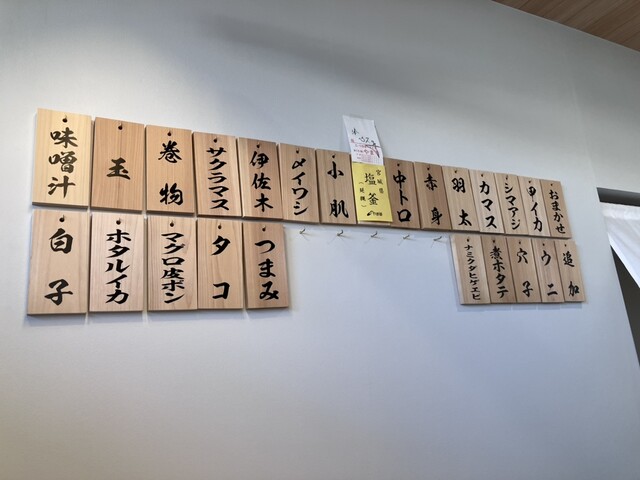 おまかせ
甲イカ
シマアジ
カマス
羽太
赤身
中トロ
宮城県
塩釜
小肌
〆イワシ
伊佐木
サクラマス
巻物
玉
味噌汁
追加
ウニ
穴子
煮ホタテ
ナミクダヒゲエビ
つまみ
タコ
マグロ皮ポン
ホタルイカ
白子